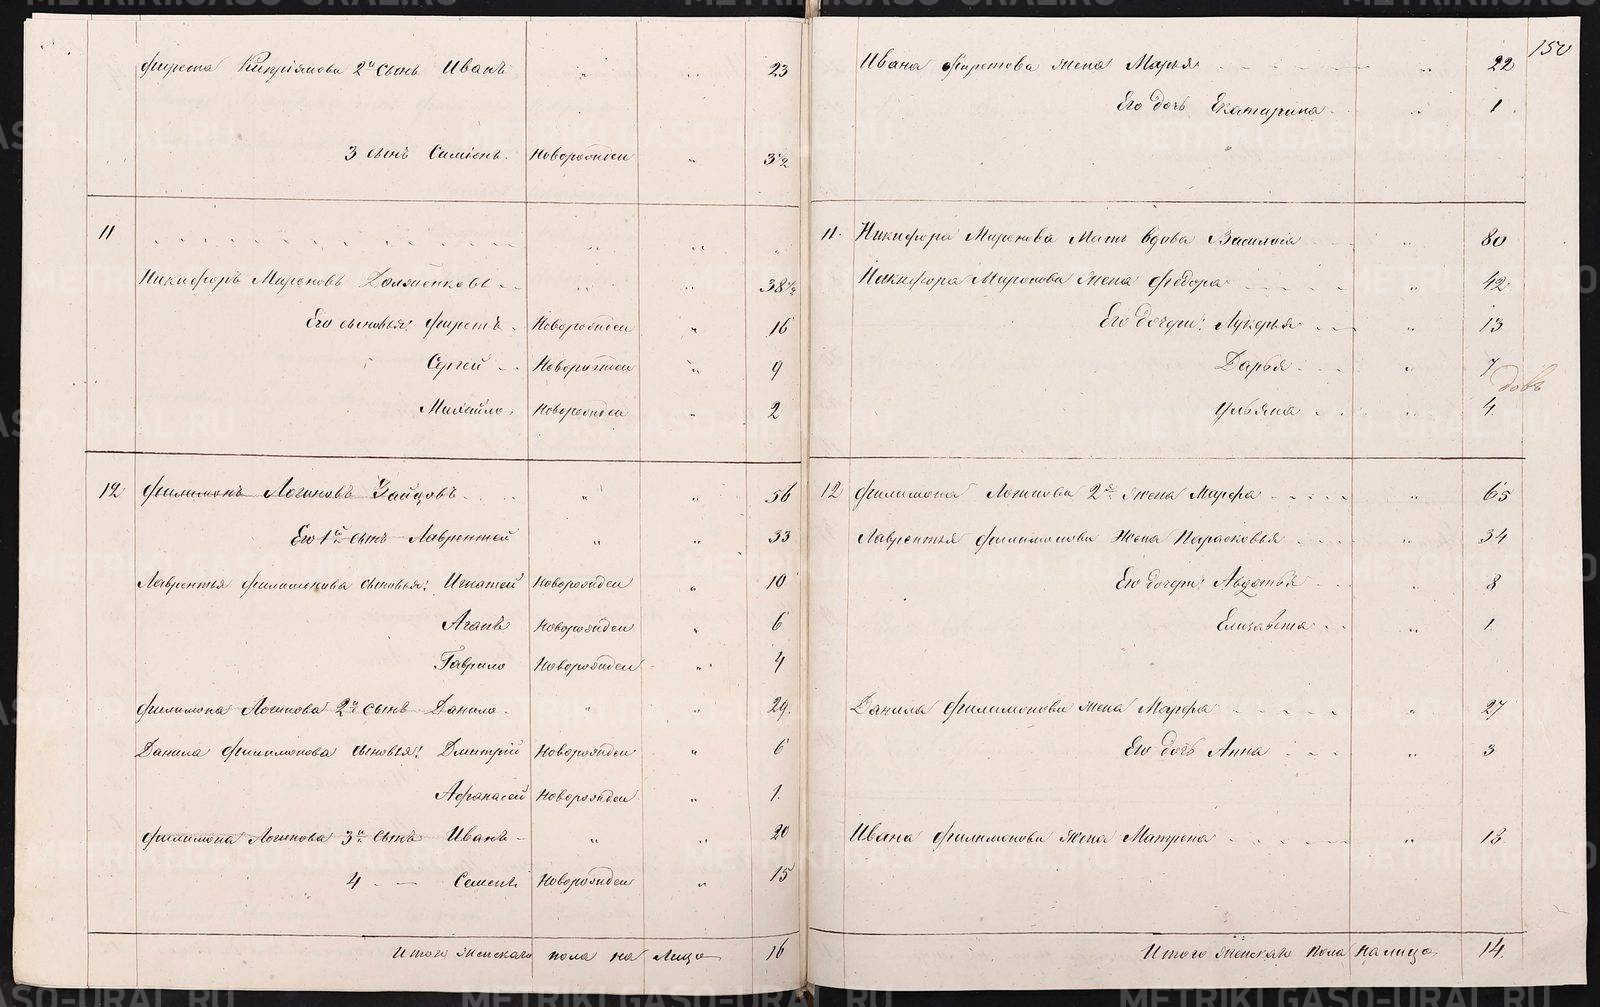 фирста Кипріянова 2й сынъ Иванъ " " 23
3 сынъ Симіонъ. Новорожден " 3½
11 " " "
Никифоръ Мироновъ Долженковъ " " 38½
Его сыновья: фирстъ. Новорожден " 16
Сергей Новорожден " 9
Михайло. Новорожден " 2
12 филимонъ Логиновъ Зайцовъ " " 56
Его 1й сынъ Лаврентей " " 33
Лаврентья филимонова сыновья: Игнатей Новорожден " 10
Агапъ Новорожден " 6
Гаврило Новорожден " 4
филимона Логинова 2й сынъ Данило. " " 29.
Данила филимонова сыновья: Дмитрій Новорожден " 6
Афанасей Новорожден " 1.
филимона Логинова 3й сынъ Иванъ " " 20
4 — Семенъ Новорожден " 15
Итого женскаго пола на Лицо 16
150
Ивана фирстова жена Марья " 22
Его дочь Екатерина " 1.
11. Никифора Миронова Мать вдова Василиса " 80
Никифора Миронова жена федора " 42
Его дочери: Лукерья " 13
Дарья " 7
Ульяна " 4.
12 филимона Логинова 2я жена Марфа " 65
Лаврентья филимонова жена Парасковья " 34
Его дочери: Авдотья " 8
Елизавета " 1.
Данила филимонова жена Марфа " 27
Его дочь Анна " 3
Ивана филимонова жена Матрена " 18
Итого женскаго пола на лицо 14.
METRIKI.GASO-URAL.RU